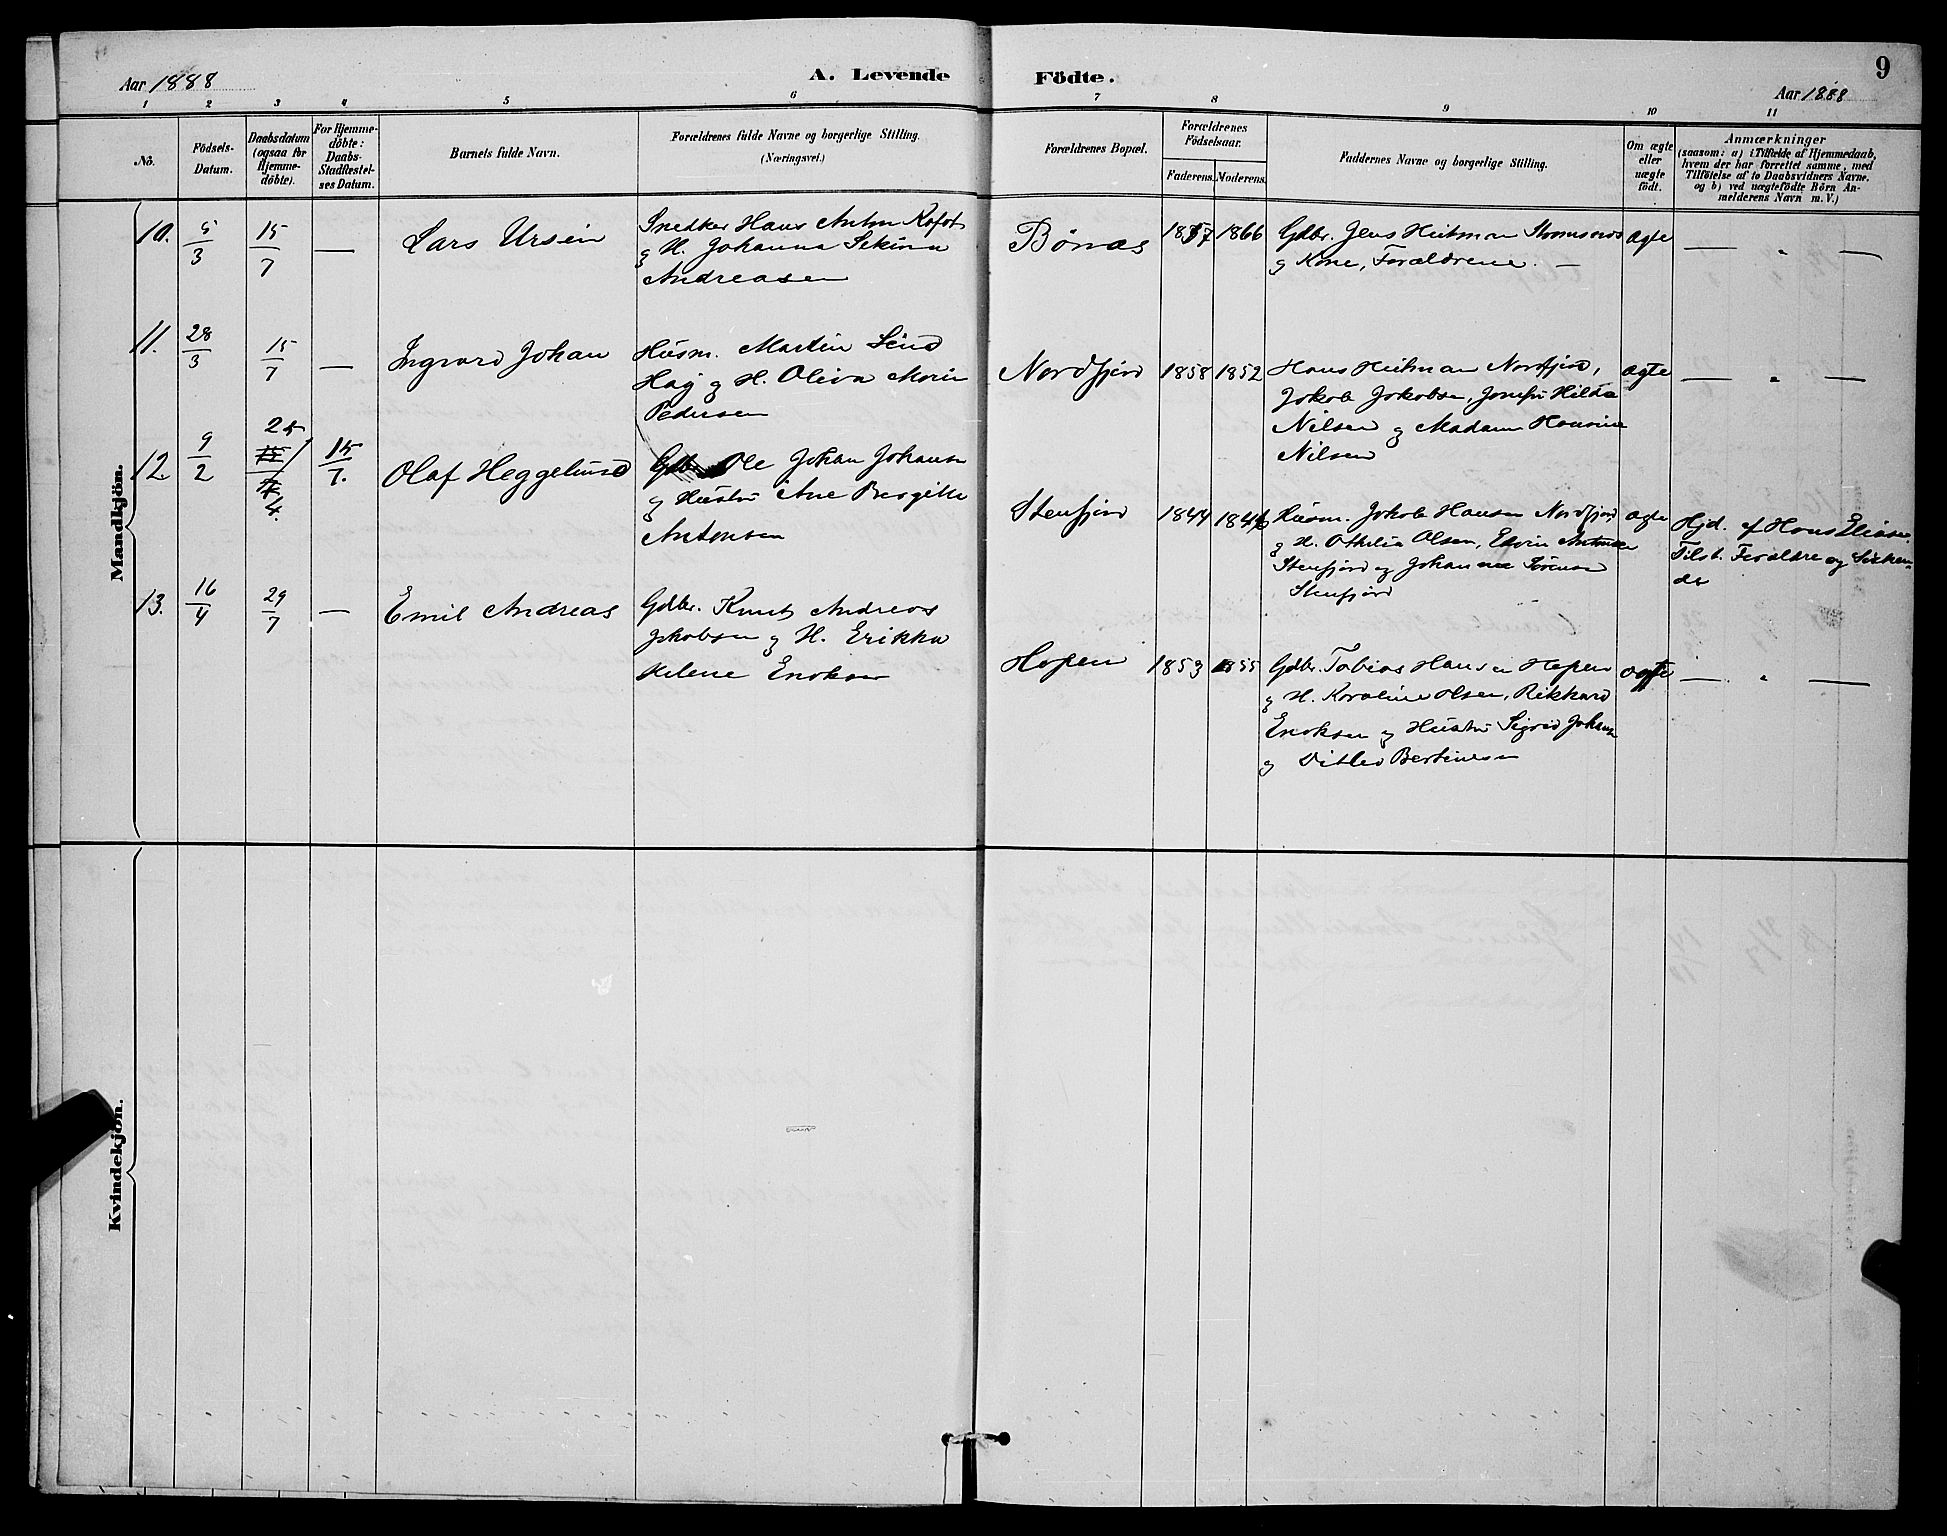 Aar 1888
A. Levende
Födte.
Aar 1888
9
1 2 3 4 5 6 7 8 9 10 11
No.
Födsels-
Datum.
Daabsdatum
(ogsaa for
Hjemme-
döbte).
For Hjemme-
döbte:
Daabs-
Stadfæstel-
ses Datum.
Barnets fulde Navn.
Forældrenes fulde Navne og borgerlige Stilling.
(Næringsvei.)
Forældrenes Bopæl.
Forældrenes
Födselsaar.
Faderens. Moderens.
Faddernes Navne og borgerlige Stilling.
Om ægte
eller
uægte
födt.
Anmærkninger
(saasom: a) i Tilfælde af Hjemmedaab,
hvem der har forrettet samme, med
Tilföielse af to Daabsvidners Navne.
og b) ved uægtefödte Börn An-
melderens Navn m. V.)
Mandkjön.
10. 5/3 15/7 — Lars Ursin
Snedker Hans Anton Kofot
og H. Johanna
Andreasen
Bønæs 1857 1866
Gdbr. Jens Heitman
og Kone, Forældrene. —
ægte — " —
11. 28/3 15/7 — Ingvard Johan
Husm. Martin
Hag og H. Oliva
Pedersen
Nordfjord 1858 1852
Hans Heitman Nordfjord,
Jakob Jakobsen, Hilda
Nilsen og Madam
Nilsen
ægte — " —
12 9/2 25/4. 15/7. Olaf Heggelund
Gdbr. Ole Johan Johansen
og Hustru Ane Bergitte
Antonsen
Stenfjord 1844 1846
Husm. Jakob Hansen Nordfjord
og H. Othelia Olsen, Antonsen
Stenfjord og Johanne Sørensen
Stenfjord
ægte
Hjd. af Hans Eliasen.
Tilst. Forældre og
13. 16/4 29/7 — Emil Andreas
Gdbr. Knut Andreas
Jakobsen og H. Erikka
Helene Enoksen
Hopen 1853 1855
Gdbr. Tobias Hansen Hopen
og H. Karoline Olsen, Rikkard
Enoksen og Hustru Sigrid Johnsen
og Ditlev Bertinusen
ægte — " —
Kvindekjön.